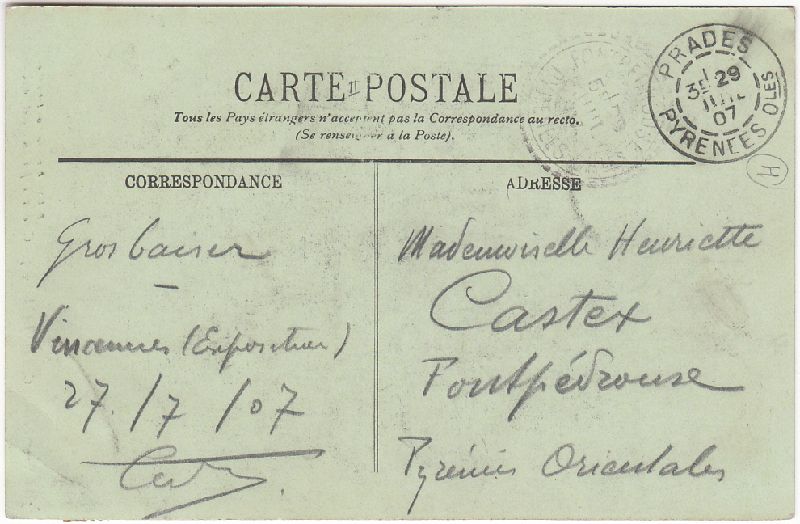 CARTE POSTALE
Tous les Pays étrangers n'acceptent pas la Correspondance au recto.
(Se renseigner à la Poste).
PRADES
3E 29
JUIL
07
PYRENEES OLES
H
CORRESPONDANCE
Gros baiser
Vincennes (Exposition)
27/7/07
ADRESSE
Mademoiselle Henriette
Castex
Fontpédrouse
Pyrénées Orientales